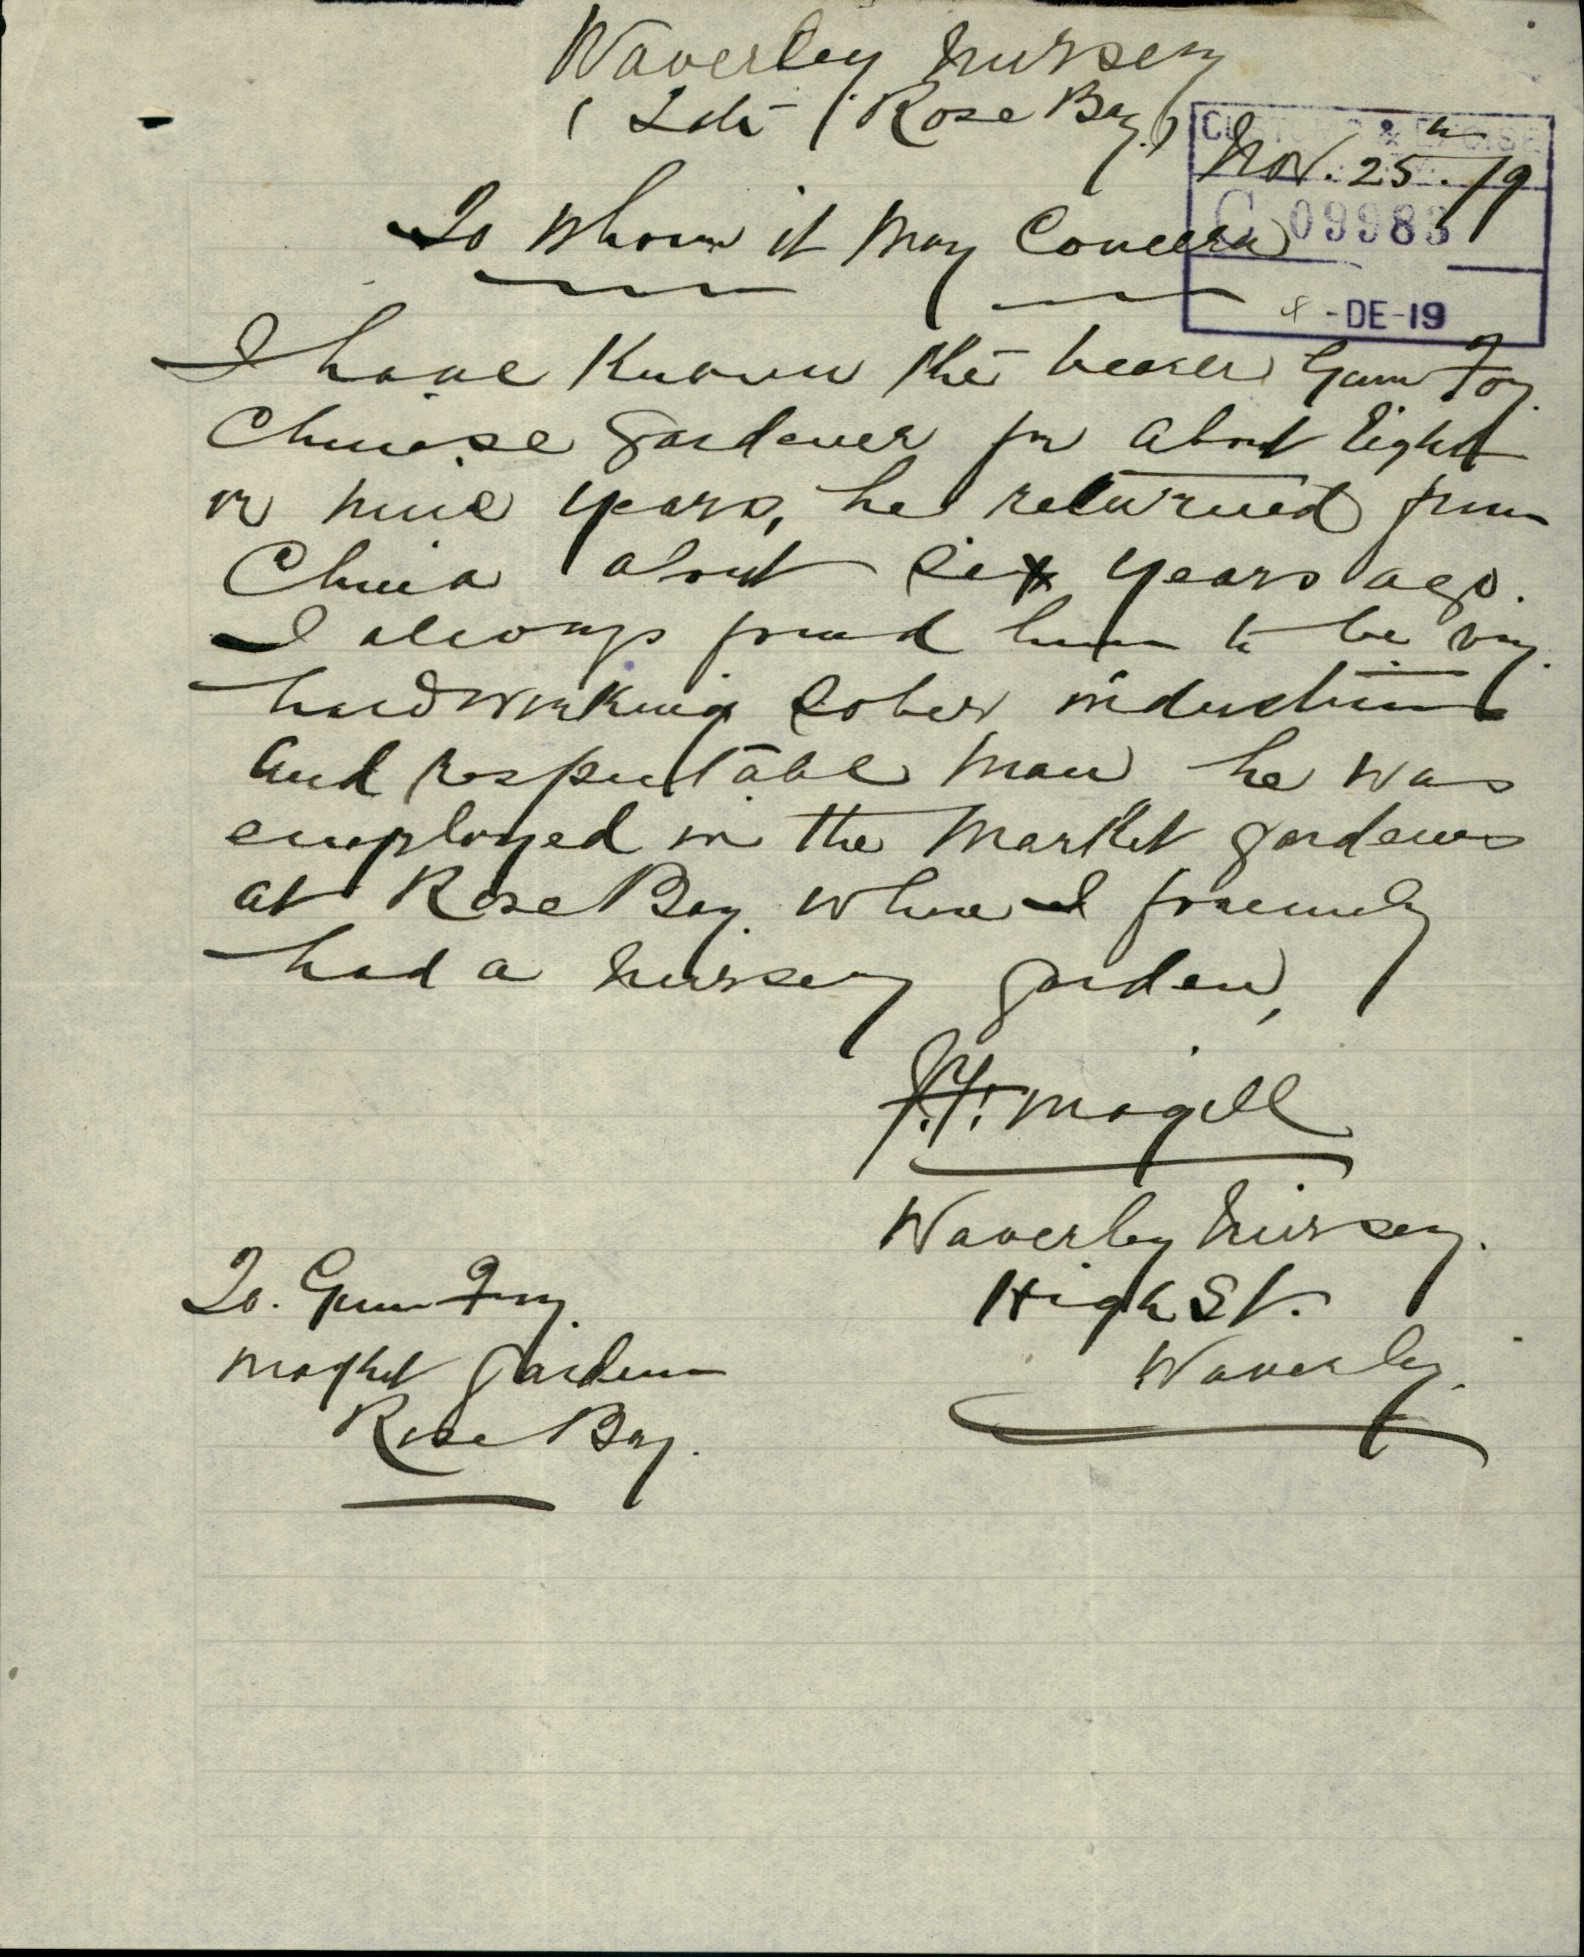 Waverley Nursery
(Late / Rose Bay.)
CUSTOMS & EXCISE
Nov. 25th /19
C 09983
To Whom it May Concern
4 -DE-19
I have Known the bearer Gum Foy.
Chinese gardener for about Eight
or nine years, he returned from
China about six years ago.
I always found him to be very
hardworking sober industrious
and respectable man he was
employed in the Market gardens
at Rose Bay where I formerly
had a nursery garden,
Magill
Waverley Nursery.
High St.
Waverley.
To. Gum Foy.
Market Gardener
Rose Bay.